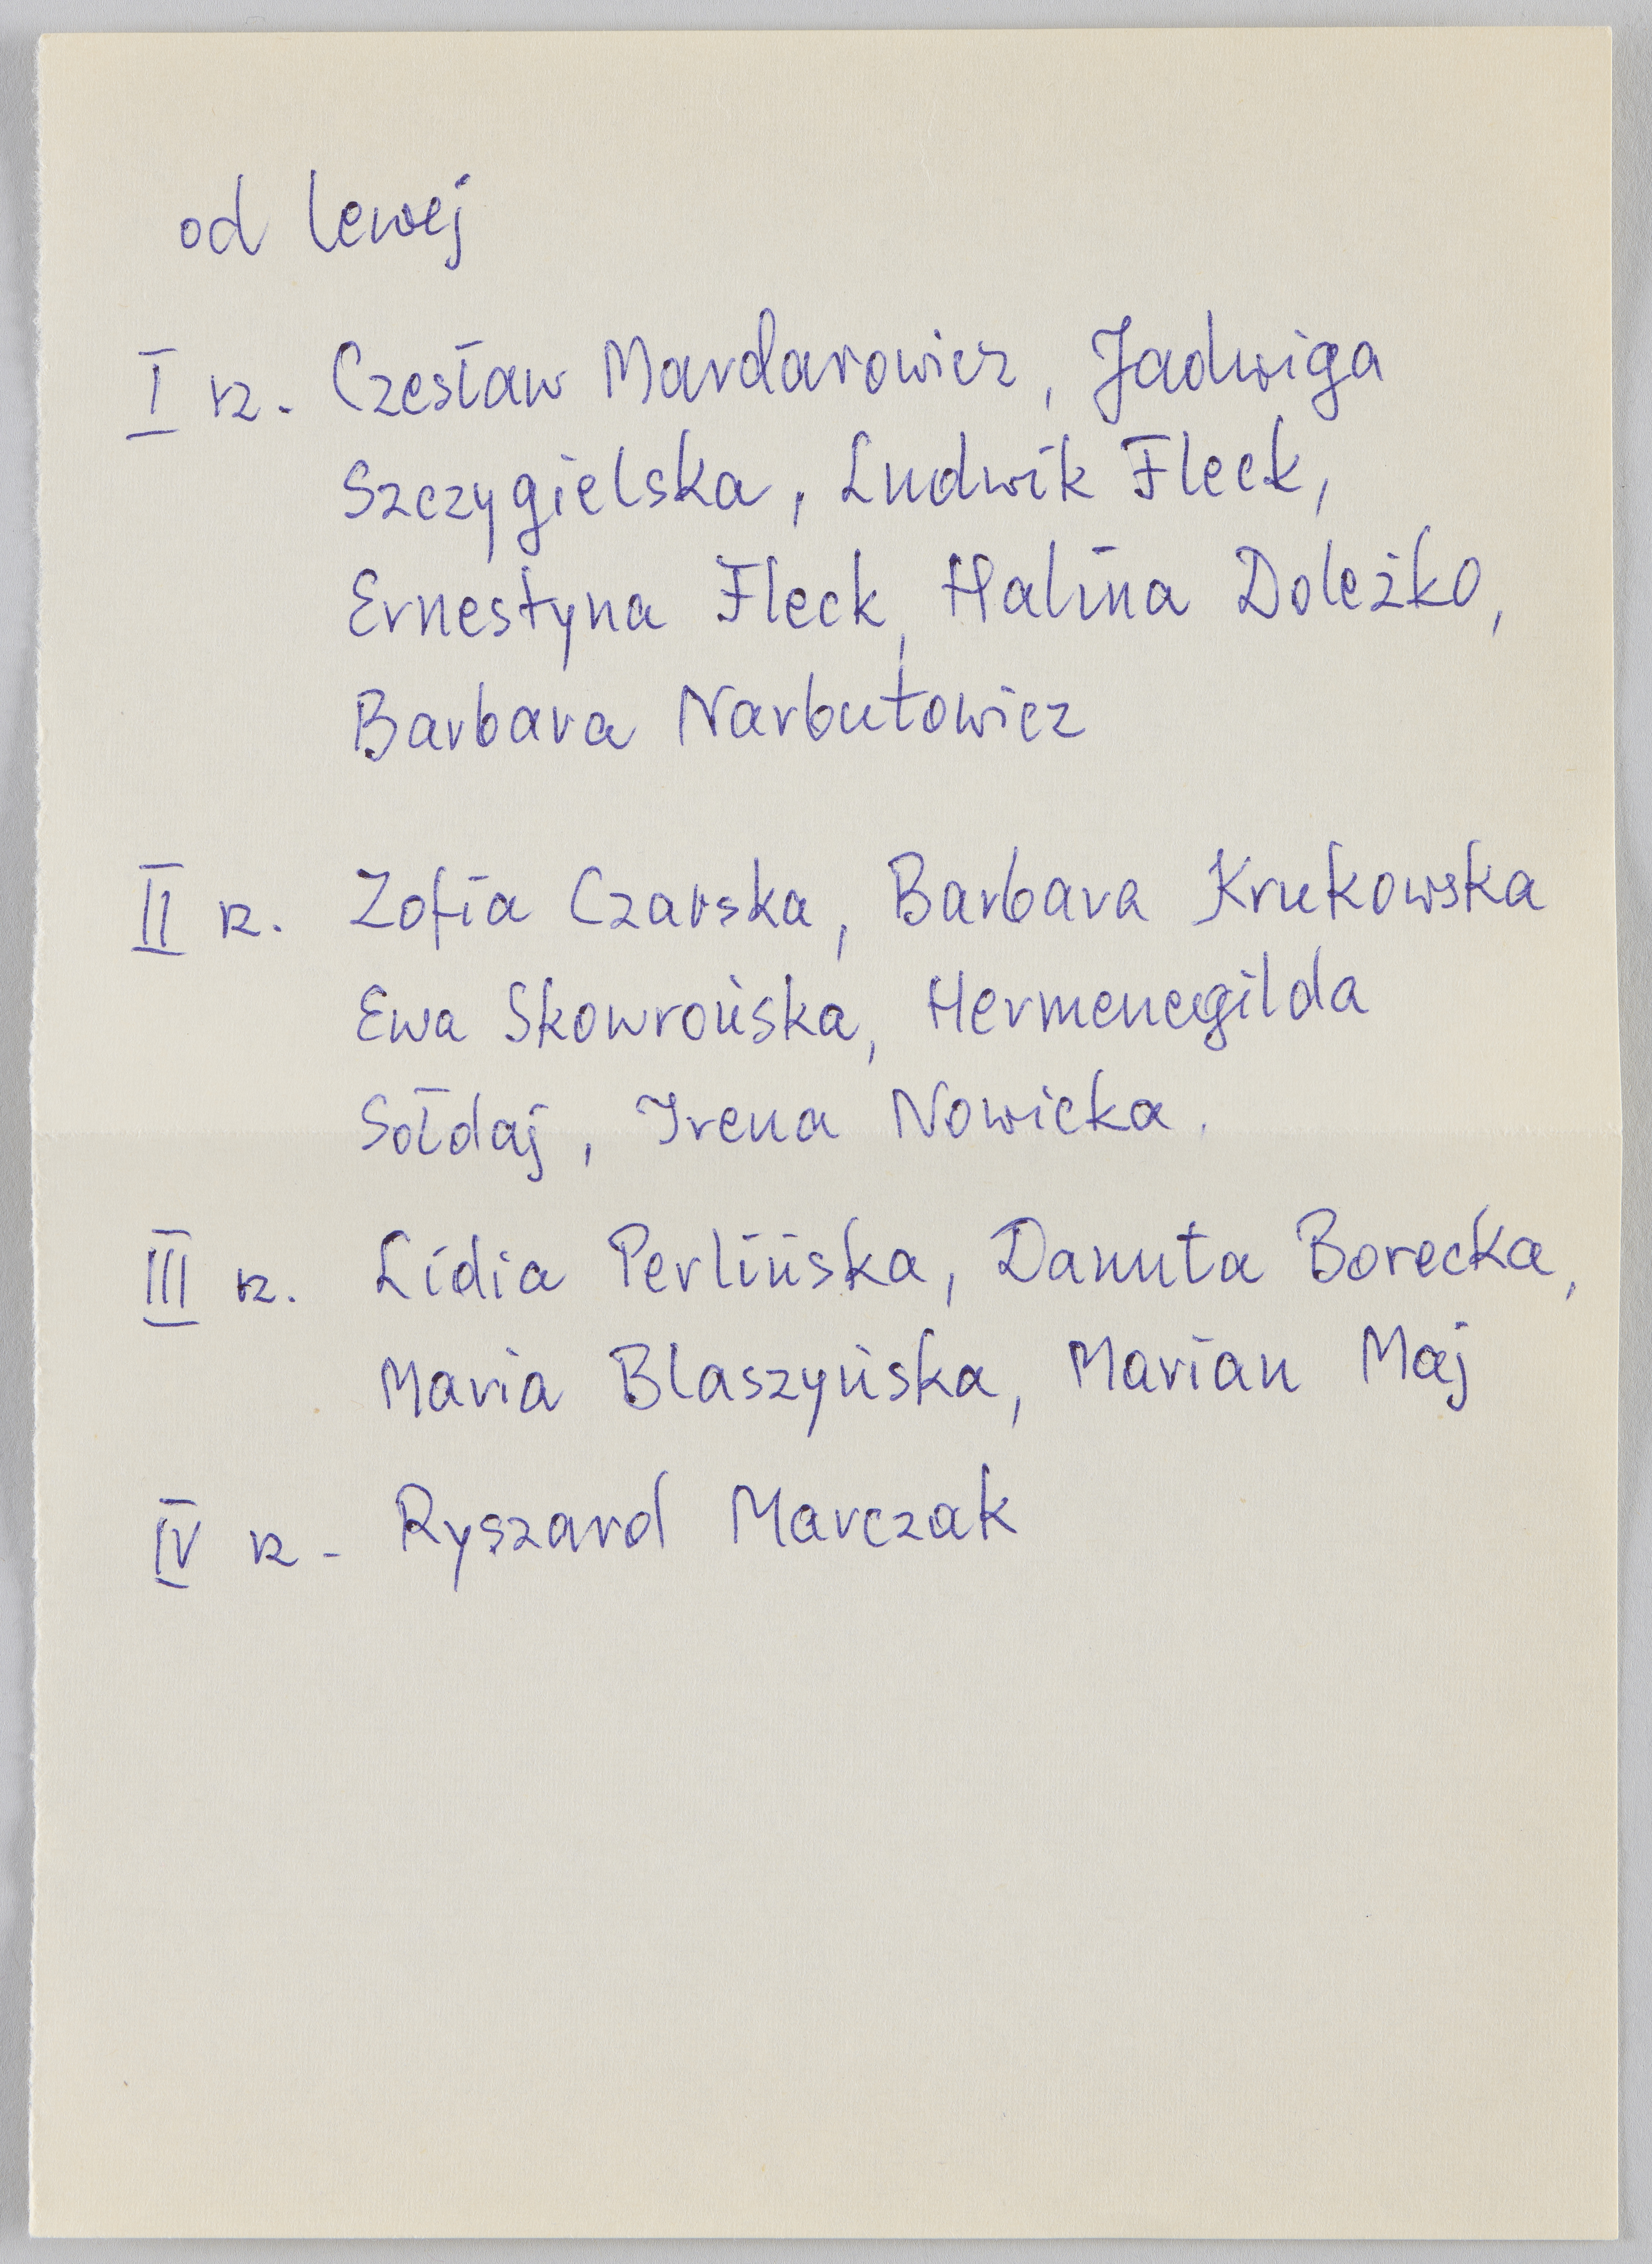 od lewej
I rz. Czesław Mardarowicz, Jadwiga
Szczygielska, Ludwik Fleck,
Ernestyna Fleck, Halina Doleżko,
Barbara Narbutowicz
II rz. Zofia Czarska, Barbara Krukowska
Ewa Skowrońska, Hermenegilda
Sołdaj, Irena Nowicka.
III rz. Lidia Perlińska, Danuta Borecka,
Maria Blaszyńska, Marian Maj
IV rz - Ryszard Marczak